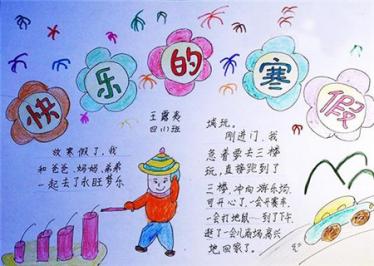 快乐的寒假
王露爽
四(1)班
放寒假了,我
和爸爸、妈妈、弟弟
一起去了永旺梦乐
城玩。
刚进门,我
急着要去三楼
玩,直接跑到了
三楼,冲向游乐场,
可开心了,一会开赛车,
一会打地鼠…到了下午,
逛了一会儿商场,高兴
地回家了。